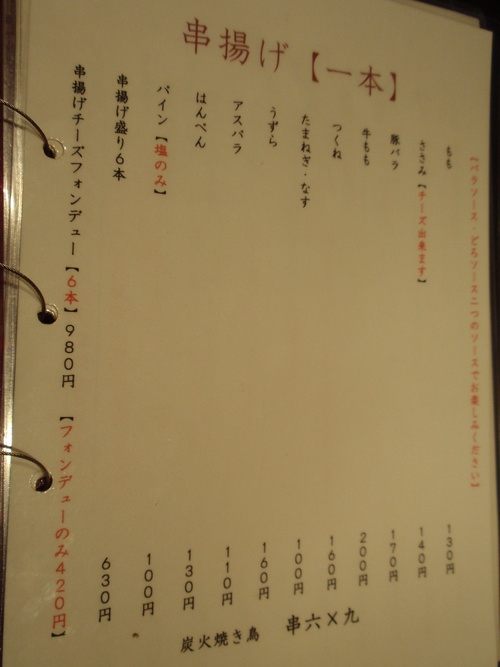 串揚げ【一本】
【バラソース・どろソース二つのソースでお楽しみください】
もも 130円
ささみ【チーズ出来ます】 140円
豚バラ 170円
牛もも 200円
つくね 160円
たまねぎ・なす 100円
うずら 160円
アスパラ 110円
はんぺん 130円
パイン【塩のみ】 100円
串揚げ盛り6本 630円
串揚げチーズフォンデュー【6本】980円
【フォンデューのみ420円】
炭火焼き鳥 串六×九